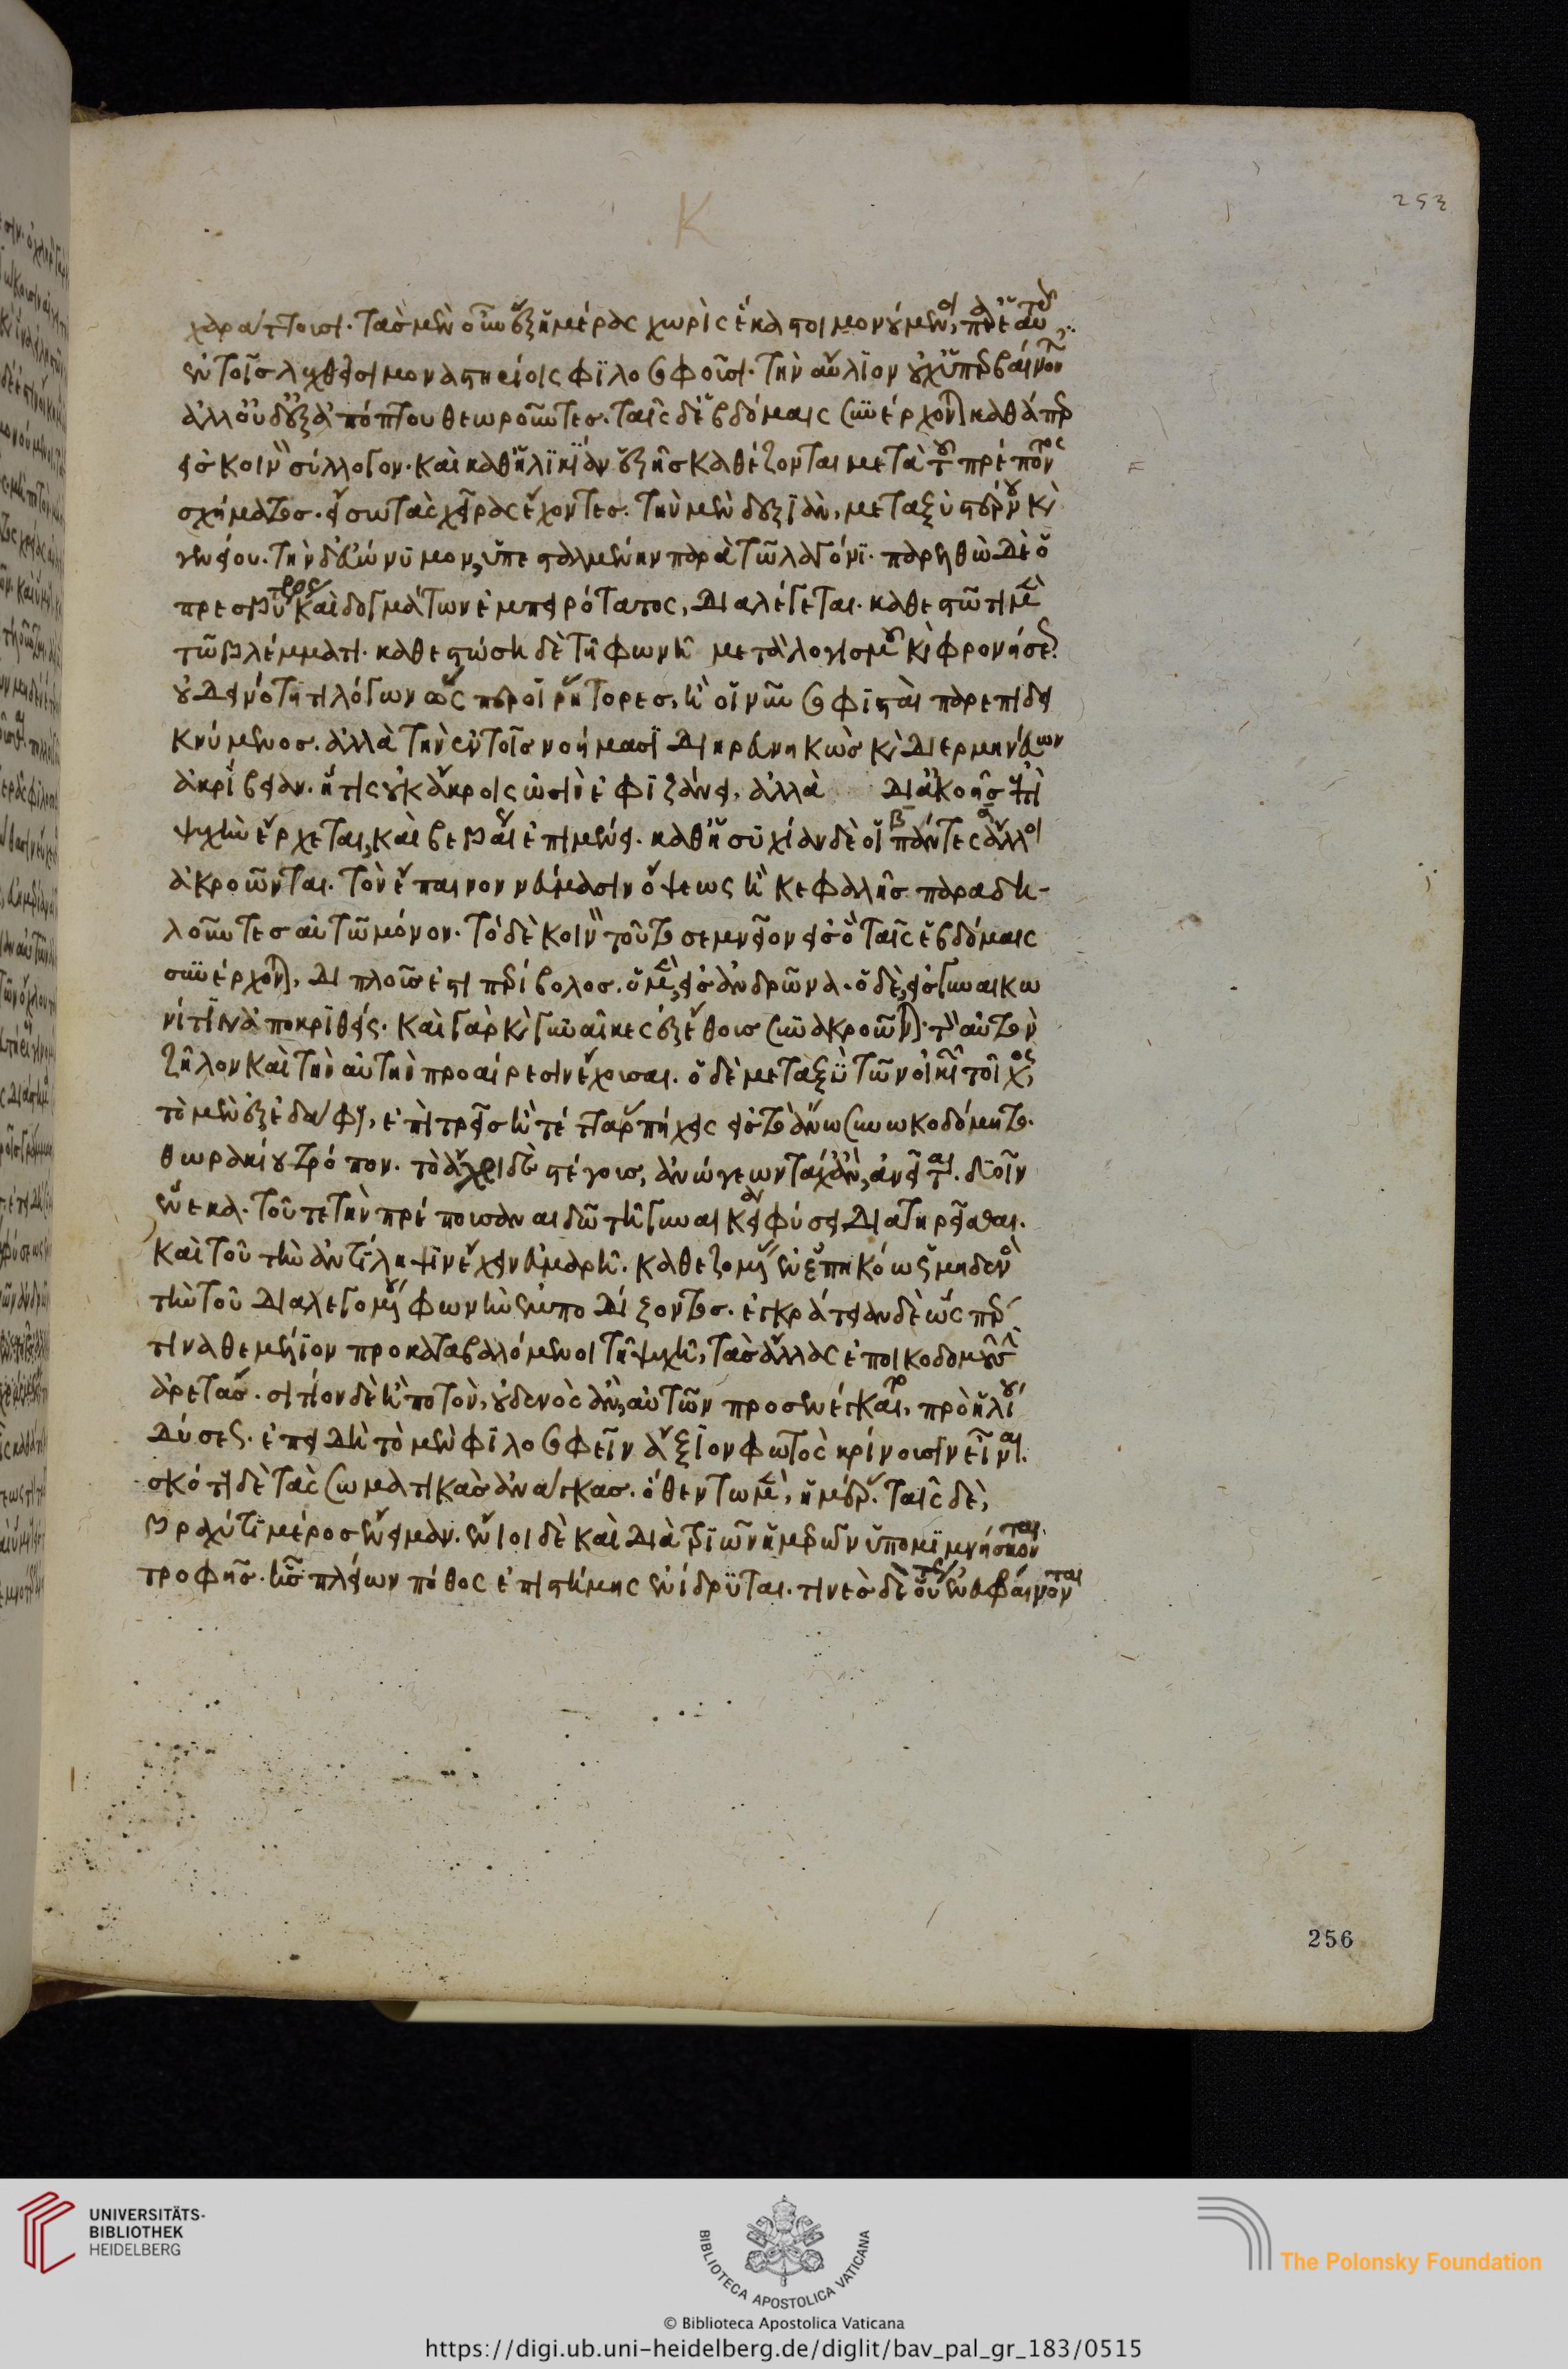 χαράττουσι. τὰς μὲν οὖν ἓξ ἡμέρας χωρὶς ἕκαστοι μονούμενοι, παρ' ἑαυτοῖς
ἐν τοῖς λεχθεῖσι μοναστηρίοις φιλοσοφοῦσι. τὴν αὔλιον οὐχ ὑπερβαίνοντες
ἀλλ' οὐδ' ἐξ ἀπόπτου θεωροῦντες. ταῖς δὲ ἑβδόμαις συνέρχονται καθάπερ
εἰς κοινὸν σύλλογον. καὶ καθ' ἡλικίαν ἑξῆς καθέζονται μετὰ τοῦ πρέποντος
σχήματος. εἴσω τὰς χεῖρας ἔχοντες. τὴν μὲν δεξιὰν, μεταξὺ στέρνου καὶ
γενείου. τὴν δ' εὐώνυμον, ὑπεσταλμένην παρὰ τῶ λαγόνι. παρελθὼν δὲ ὁ
πρεσβύτερος καὶ δογμάτων ἐμπειρότατος, διαλέγεται. καθεστῶτι μὲν
τῶ βλέμματι. καθεστώση δὲ τῆ φωνῆ μετὰ λογισμοῦ καὶ φρονήσεως.
οὐ δεινότητι λόγων ὥσπερ οἱ ῥήτορες, ἢ οἱ νῦν σοφισταὶ παρεπιδει
κνύμενος. ἀλλὰ τὴν ἐν τοῖς νοήμασι διηρευνηκὼς καὶ διερμηνεύων
ἀκρίβειαν. ἥτις οὐκ ἄκροις ὠσὶν ἐφιζάνει, ἀλλὰ δι' ἀκοῆς ἐπὶ
ψυχὴν ἔρχεται, καὶ βεβαίως ἐπιμένει. καθ' ἡσυχίαν δὲ οἱ πάντες ἄλλοι
ἀκροῶνται. τὸν ἔπαινον νεύμασιν ὄψεως ἢ κεφαλῆς παραδη-
λοῦντες αὐτῶ μόνον. τὸ δὲ κοινὸν τοῦτο σεμνεῖον εἰς ὃ ταῖς ἑβδόμαις
συνέρχονται, διπλοῦς ἐστι περίβολος. ὁ μὲν, εἰς ἀνδρῶνα. ὁ δὲ, εἰς γυναικω
νῖτιν ἀποκριθείς. καὶ γὰρ καὶ γυναῖκες ἐξ ἔθους συνακροῶνται. τὸν αὐτὸν
ζῆλον καὶ τὴν αὐτὴν προαίρεσιν ἔχουσαι. ὁ δὲ μεταξὺ τῶν οἴκων τοῖχος,
τὸ μὲν ἐξ ἐδάφους, ἐπὶ τρεῖς ἢ τέτταρας πήχεις εἰς τὸ ἄνω συνωκοδόμηται.
θωρακίου τρόπον. τὸ δ' ἄχρι δὲ στέγους, ἀνώγεων ται ἀν, ἀνεῖται. δυοῖν
ἕνεκα. τοῦ τε τὴν πρέπουσαν αἰδῶ τῆ γυναικεία φύσει διατηρεῖσθαι.
καὶ τοῦ τὴν ἀντίληψιν ἔχειν εὐμαρῆ. καθεζομένας ἐν ἐπηκόω, μηδενὸς
τὴν τοῦ διαλεγομένου φωνὴν ἐμποδίζοντος. ἐγκράτειαν δὲ ὥσπερ
τινα θεμέλιον προκαταβαλόμενοι τῆ ψυχῆ, τὰς ἄλλας ἐποικοδομοῦσιν
ἀρετάς. σιτίον δὲ ἢ ποτὸν, οὐδενὸς ἂν, αὐτῶν προσενέγκαιτο, πρὸ ἡλίου
δύσεως. ἐπειδὴ τὸ μὲν φιλοσοφεῖν ἄξιον φωτὸς κρίνουσιν εἶναι.
σκότει δὲ τὰς σωματικὰς ἀνάγκας. ὅθεν τῶ μὲν, ἡμέραν. ταῖς δὲ,
βραχύτι μέρος ἔνειμαν. ἔνιοι δὲ καὶ διὰ τριῶν ἡμερῶν ὑπομιμνήσκονται
τροφῆς. οἷς πλείων πόθος ἐπιστήμης ἐνίδρυται. τινὲς δὲ οὕτως ἐνευφραίνονται
253
256
UNIVERSITÄTS-
BIBLIOTHEK
HEIDELBERG
BIBLIOTECA APOSTOLICA VATICANA
The Polonsky Foundation
© Biblioteca Apostolica Vaticana
https://digi.ub.uni-heidelberg.de/diglit/bav_pal_gr_183/0515